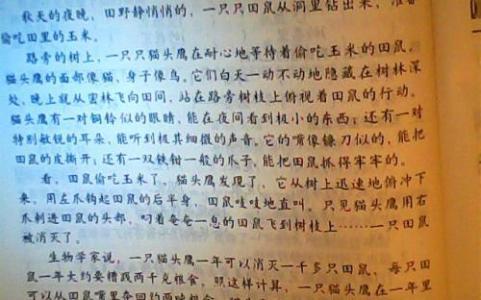 秋天的夜晚，田野静悄悄的，一只只田鼠从洞里钻出来，准备
偷吃田里的玉米。
路旁的树上，一只只猫头鹰在耐心地等待着偷吃玉米的田鼠。
猫头鹰的面部像猫，身子像鸟，它们白天一动不动地隐藏在树林深
处，晚上就从密林飞向田间，站在路旁树枝上俯视着田鼠的行动。
猫头鹰有一对铜铃似的眼睛，能在夜间看到极小的东西；还有一对
特别敏锐的耳朵，能听到极其细微的声音。它的嘴像镰刀似的，能把
田鼠的皮撕开；还有一双铁钳一般的爪子，能把田鼠抓得牢牢的。
看，田鼠偷吃玉米了。猫头鹰发现了，它从树上迅速地俯冲下
来，用左爪钩起田鼠的后半身，田鼠吱吱地直叫。只见猫头鹰用右
爪刺进田鼠的头部，叼着奄奄一息的田鼠飞到树枝上………一只田鼠
被消灭了。
生物学家说，一只猫头鹰一年可以消灭一千多只田鼠，每只田
鼠一年大约要糟践两千克粮食，照这样计算，一只猫头鹰在一年里
可以从田鼠嘴里夺回约两吨粮食